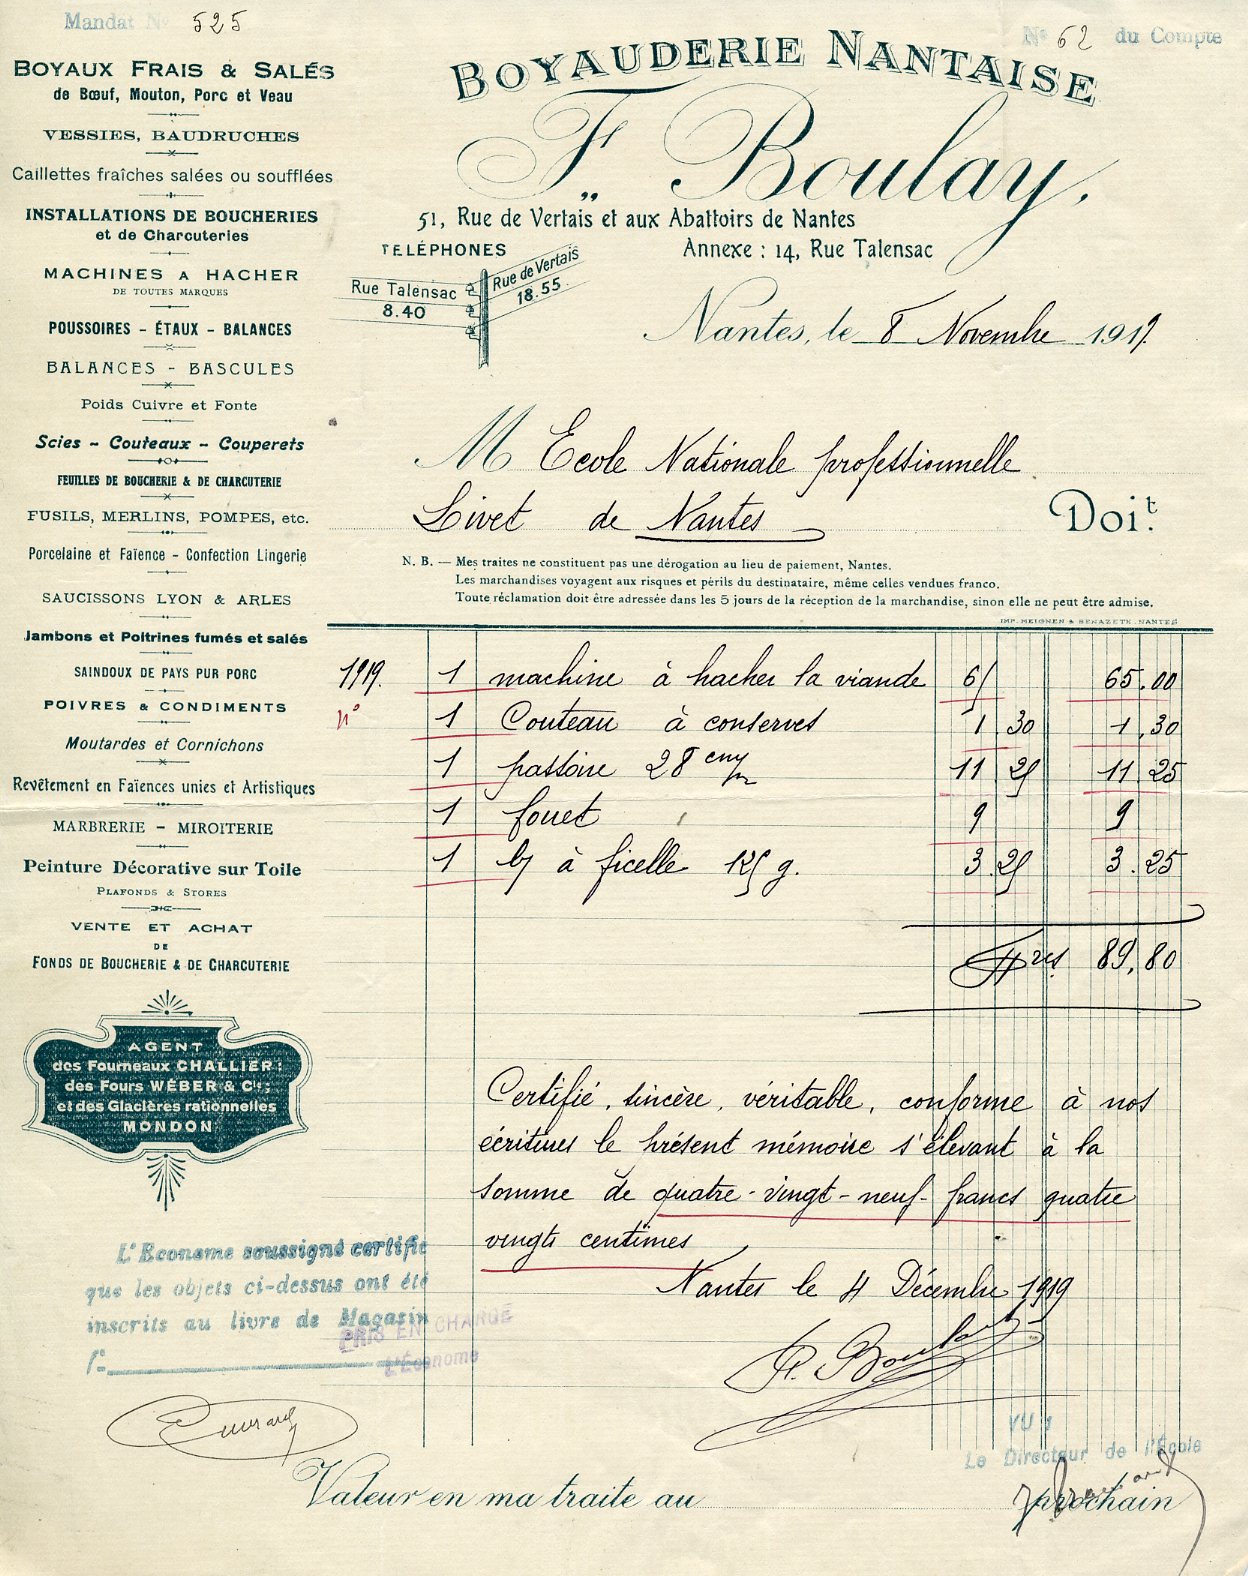 Mandat N° 525
N° 62 du Compte
BOYAUX FRAIS & SALÉS
de Bœuf, Mouton, Porc et Veau
VESSIES, BAUDRUCHES
Caillettes fraîches salées ou soufflées
INSTALLATIONS DE BOUCHERIES
et de Charcuteries
MACHINES A HACHER
DE TOUTES MARQUES
POUSSOIRES - ÉTAUX - BALANCES
BALANCES - BASCULES
Poids Cuivre et Fonte
Scies - Couteaux - Couperets
FEUILLES DE BOUCHERIE & DE CHARCUTERIE
FUSILS, MERLINS, POMPES, etc.
Porcelaine et Faïence - Confection Lingerie
SAUCISSONS LYON & ARLES
Jambons et Poitrines fumés et salés
SAINDOUX DE PAYS PUR PORC
POIVRES & CONDIMENTS
Moutardes et Cornichons
Revêtement en Faïences unies et Artistiques
MARBRERIE - MIROITERIE
Peinture Décorative sur Toile
PLAFONDS & STORES
VENTE ET ACHAT
DE
FONDS DE BOUCHERIE & DE CHARCUTERIE
AGENT
des Fourneaux CHALLIER;
des Fours WÉBER & Cie;
et des Glacières rationnelles
MONDON
BOYAUDERIE NANTAISE
F. Boulay,
51, Rue de Vertais et aux Abattoirs de Nantes
TÉLÉPHONES
Annexe : 14, Rue Talensac
Rue Talensac
8.40
Rue de Vertais
18.55
Nantes, le 8 Novembre 1919
M Ecole Nationale professionnelle
Livet de Nantes Doit.
N. B. — Mes traites ne constituent pas une dérogation au lieu de paiement, Nantes.
Les marchandises voyagent aux risques et périls du destinataire, même celles vendues franco.
Toute réclamation doit être adressée dans les 5 jours de la réception de la marchandise, sinon elle ne peut être admise.
IMP. MEIGNEN & BENAZETH. NANTES
1919. 1 machine à hacher la viande 65 65.00
n° 1 Couteau à conserves 1 30 1,30
1 passoire 28 cm 11 25 11 25
1 fouet 9 9
1 à ficelle 125 g. 3.25 3.25
frcs 89,80
Certifié, sincère, véritable, conforme à nos
écritures le présent mémoire s'élevant à la
somme de quatre-vingt-neuf francs quatre
vingts centimes
Nantes le 4 Décembre 1919
F. Boulay
L'Econome soussigné certifie
que les objets ci-dessus ont été
inscrits au livre de Magasin
f°
PRIS EN CHARGE
L'Économe
VU !
Le Directeur de l'École
Valeur en ma traite au prochain